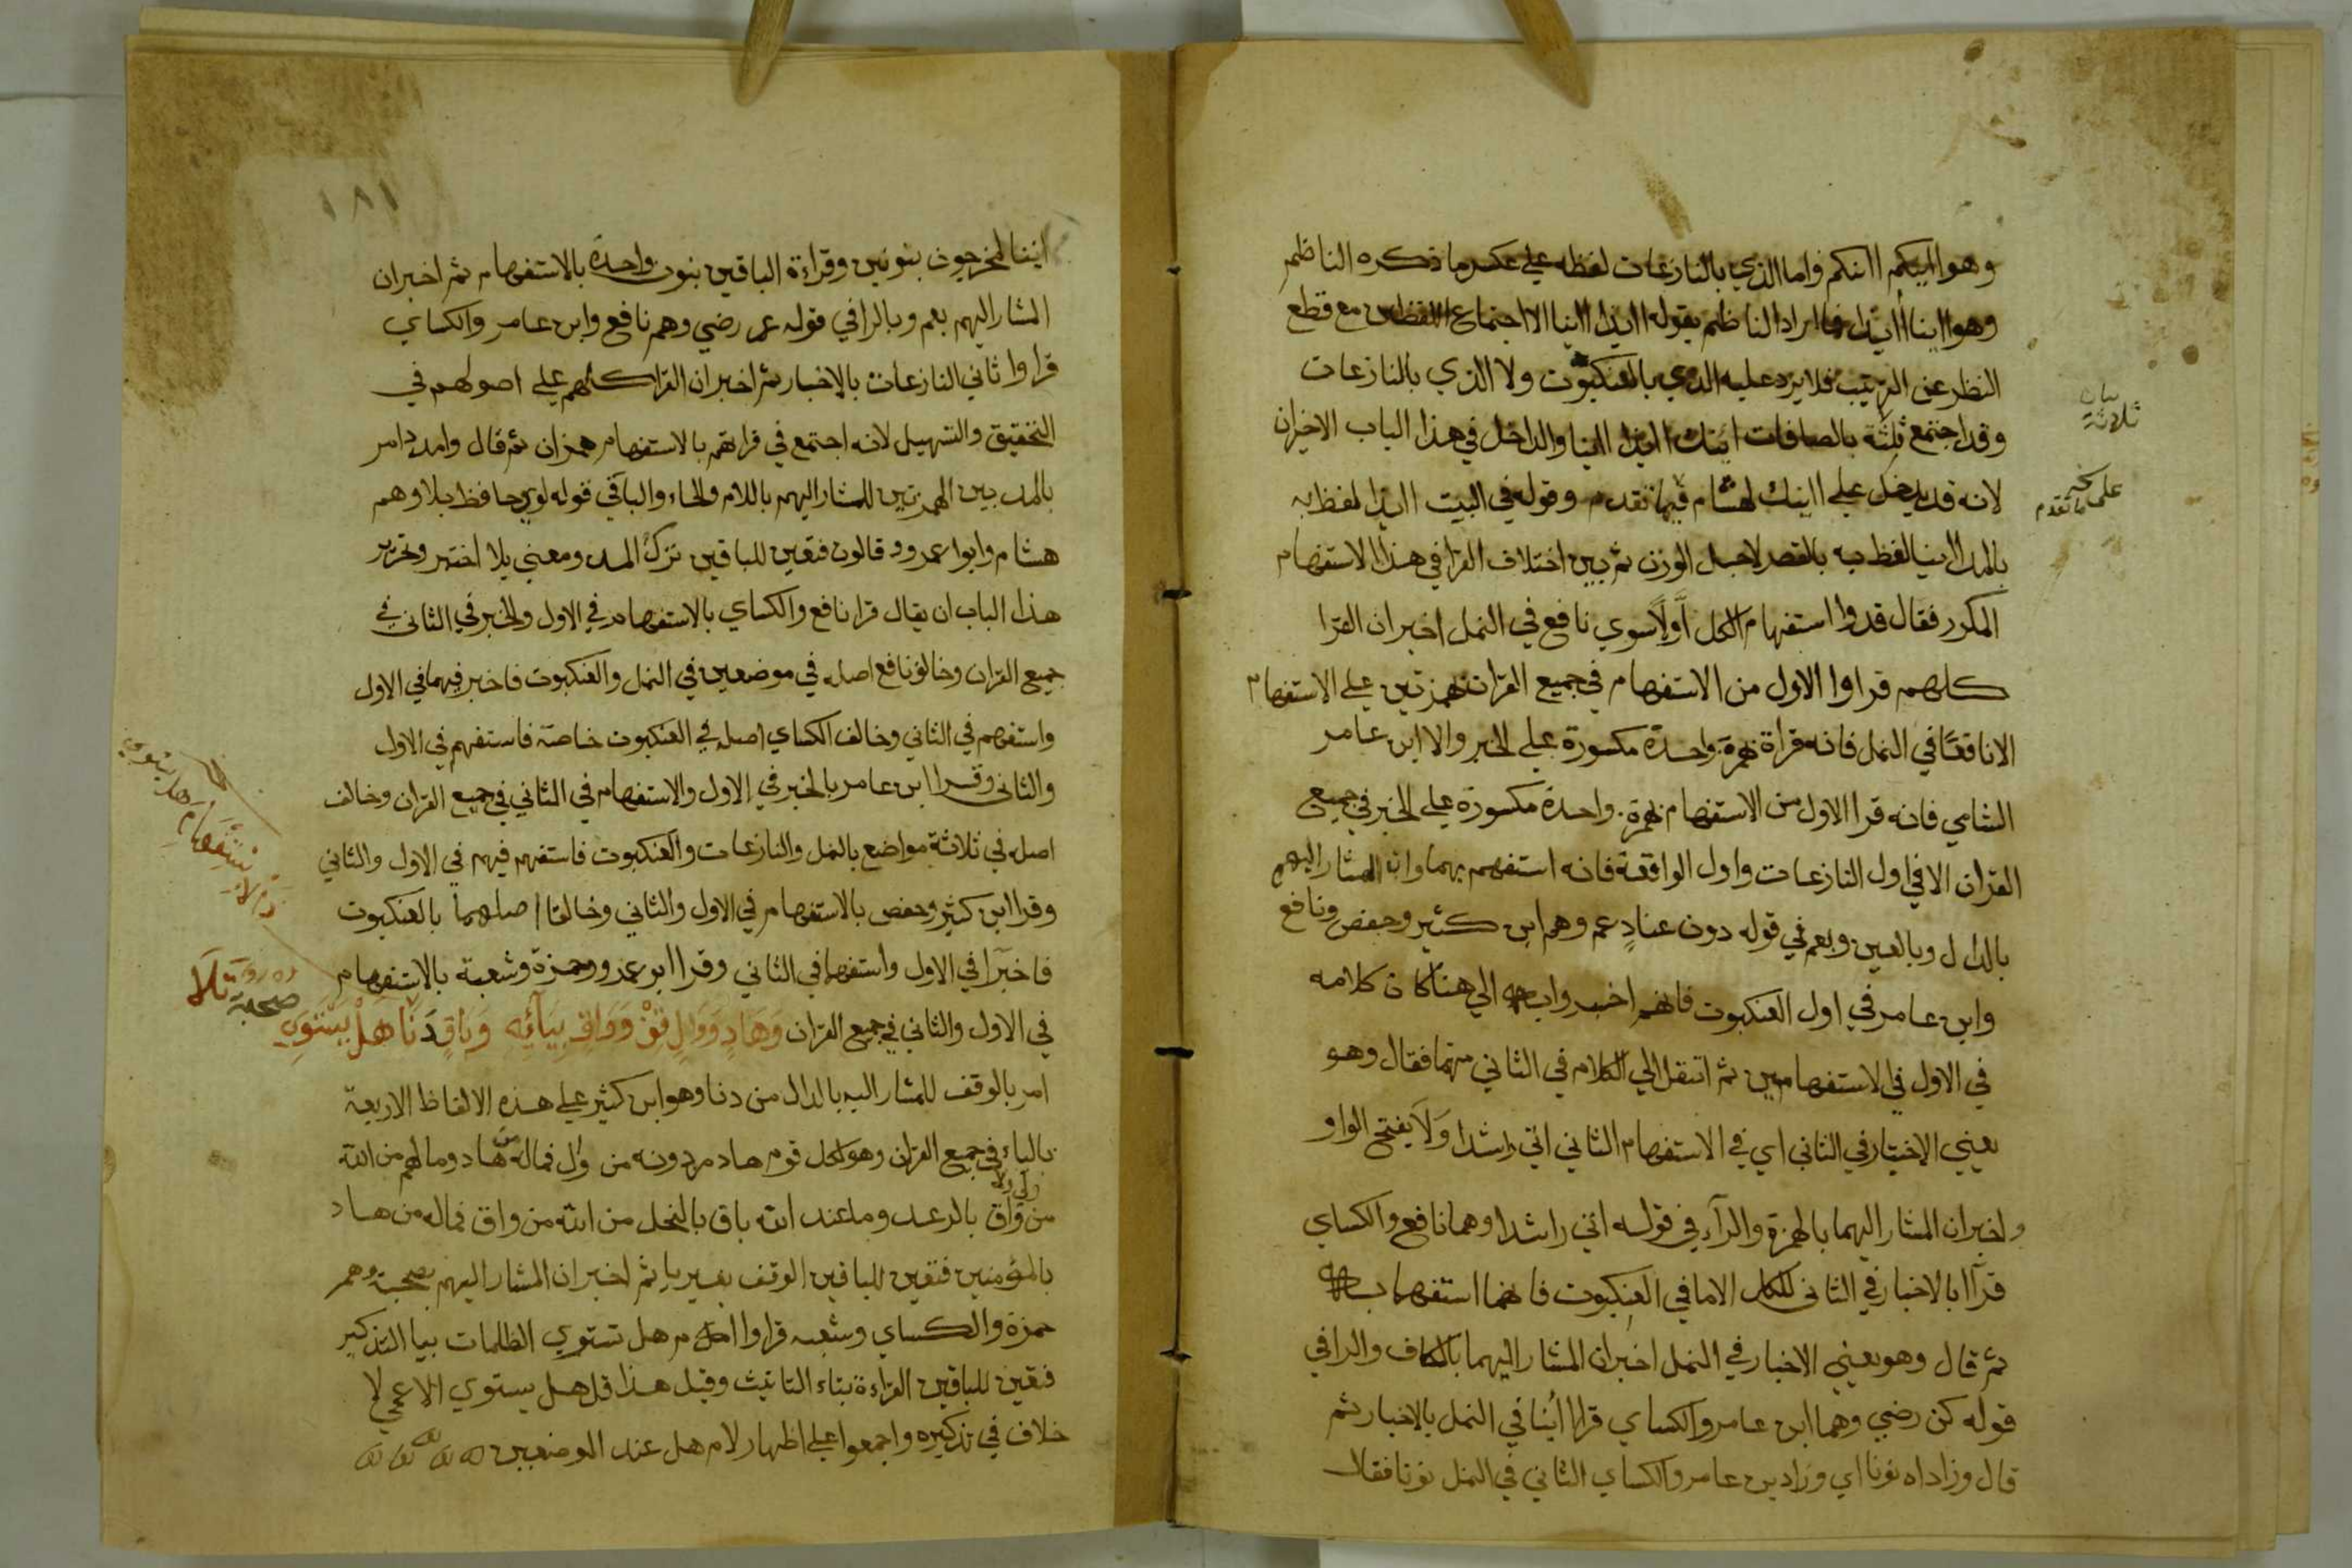 وهو ائنكم اانكم واما الذي بالنازعات لفظه علي عكس ما ذكره الناظم
وهو ااينا أايذا فما اراد الناظم بقوله اايذا ااينا الا اجتماع اللفظين مع قطع
النظر عن الترتيب فلا يرد عليه الذي بالعنكبوت ولا الذي بالنازعات
وقد اجتمع ثلثة بالصافات ائنك اايذا ااينا والداخل في هذا الباب الاخيران
بيان ثلاثة
لانه قد يدخل علي ااينك لهشام فيما تقدم وقوله في البيت اايذا لفظ به
علي ما تقدم
بالمد ااينا لفظ به بالقصر لاجل الوزن ثم بين اختلاف القرا في هذا الاستفهام
المكرر فقال قدوا استفهام الكل اولاً سوي نافع في النمل اخبر ان القرا
كلهم قراوا الاول من الاستفهام في جميع القران بهمزتين علي الاستفهام
الا نافعًا في النمل فانه قراه بهمزة واحدة مكسورة علي الخبر والا ابن عامر
الشامي فانه قرا الاول من الاستفهام بهمزة واحدة مكسورة علي الخبر في جميع
القران الا في اول النازعات واول الواقعة فانه استفهم بهما وان المشار اليهم
بالدال وبالعين وبعم في قوله دون عنادٍ عم وهم ابن كثير وحفص ونافع
وابن عامر في اول العنكبوت فانهم اخبروا به الي هنا كان كلامه
في الاول في الاستفهامين ثم انتقل الي الكلام في الثاني منهما فقال وهو
يعني الاخبار في الثاني اي في الاستفهام الثاني اتي راشدا وَلَا يفتح الواو
واخبر ان المشار اليهما بالهمزة والراء في قوله اتي راشدا وهما نافع والكساي
قرآا بالاخبار في الثاني للكل الا ما في العنكبوت فانهما استفهما به
ثم قال وهو يعني الاخبار في النمل اخبر ان المشار اليهما بالكاف والرا في
قوله كن رضي وهما ابن عامر والكساي قراا أئنا في النمل بالاخبار ثم
قال وزاداه نونا اي وزاد بن عامر والكساي الثاني في النمل نونا فقالا
١٨١
اننا لمخرجون بنونين وقراءة الباقين بنون واحدة بالاستفهام ثم اخبر ان
المشار اليهم بعم وبالرا في قوله عم رضي وهم نافع وابن عامر والكساي
قراوا ثاني النازعات بالاخبار ثم اخبر ان القرا كلهم علي اصولهم في
التحقيق والتسهيل لانه اجتمع في قراتهم بالاستفهام همزان ثم قال وامدد امر
بالمد بين الهمزتين للمشار اليهم باللام والحاء والباقي قوله لوي حافظ بلا وهم
هشام وابوا عمرو وقالون فتعين للباقين ترك المد ومعني بلا اختبر وتحرير
هذا الباب ان يقال قرا نافع والكساي بالاستفهام في الاول والخبر في الثاني في
جميع القران وخالف نافع اصله في موضعين في النمل والعنكبوت فاخبر فيهما في الاول
واستفهم في الثاني وخالف الكساي اصله في العنكبوت خاصة فاستفهم في الاول
والثاني وقرا ابن عامر بالخبر في الاول والاستفهام في الثاني في جميع القران وخالف
اصله في ثلاثة مواضع بالنمل والنازعات والعنكبوت فاستفهم فيهم في الاول والثاني
وقرا ابن كثير وحفص بالاستفهام في الاول والثاني وخالفا اصلهما بالعنكبوت
فاخبرا في الاول واستفهما في الثاني وقرا ابو عمرو وحمزة وشعبة بالاستفهام
في الاول والثاني في جميع القران وَهَادٍ وَوَالٍ قِفْ وَوَاقٍ بِيَآئِهِ وَبَاقٍ دَنَا هَلْ يَسْتَوِي
صحبة تَلَا
امر بالوقف للمشار اليه بالدال من دنا وهو ابن كثير علي هذه الالفاظ الاربعة
بالياء في جميع القران وهو لكل قوم هاد من دونه من وال فماله من هاد وما لهم من الله
من واق بالرعد وما عند الله باق بالنحل من الله من واق فماله من هاد
بالمؤمنين فتعين للباقين الوقف بغير يا ثم اخبر ان المشار اليهم بصحبة وهم
حمزة والكساي وشعبه قراوا ام هل تستوي الظلمات بيا التذكير
فتعين للباقين القراءة بتاء التانيث وقبل هذا قل هل يستوي الاعمي لا
خلاف في تذكيره واجمعوا علي اظهار لام هل عند الموضعين